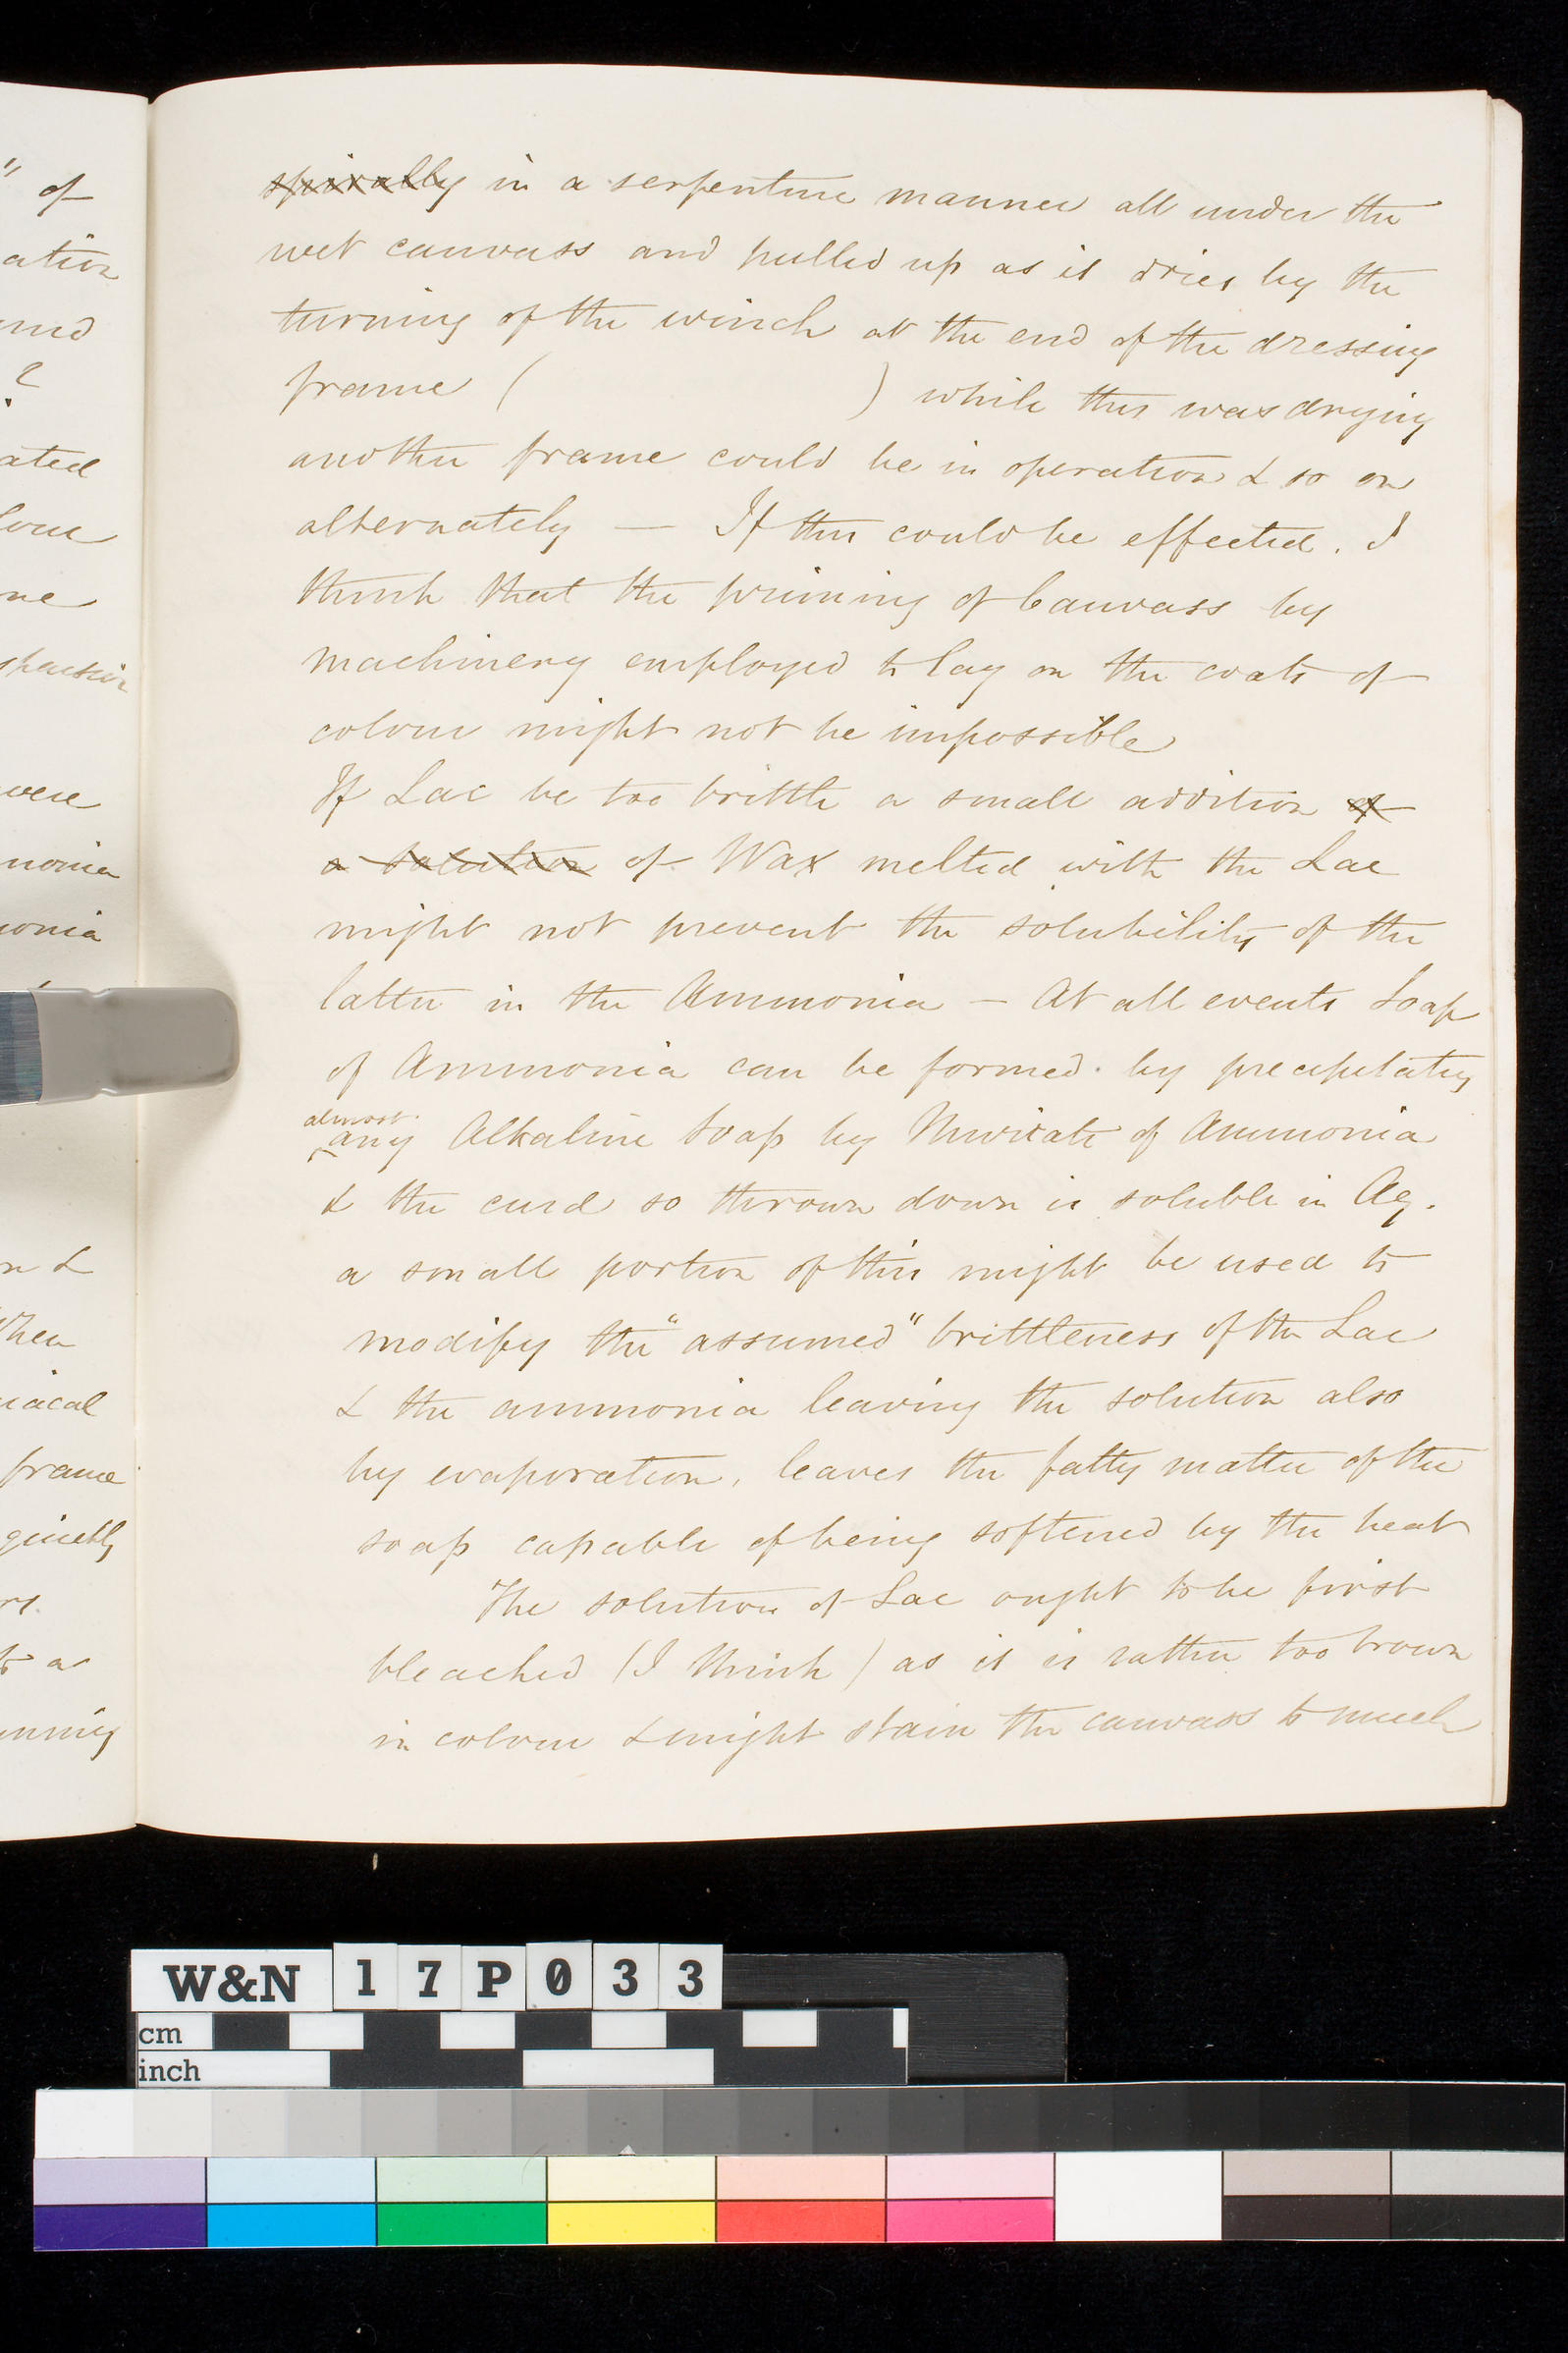 " of
ation
?
ated
were
frame
spirally in a serpentine manner all under the
wet canvass and pulled up as it dries by the
turning of the winch at the end of the dressing
frame ( ) while this was drying
another frame could be in operation & so on
alternately — If this could be effected. I
think that the priming of Canvass by
machinery employed to lay on the coats of
colour might not be impossible
If Lac be too brittle a small addition of
a solution of Wax melted with the Lac
might not prevent the solubility of the
latter in the Ammonia — At all events Soap
of Ammonia can be formed by precipitating
almost
any Alkaline Soap by Muriate of Ammonia
& the curd so thrown down is soluble in Aq.
a small portion of this might be used to
modify the "assumed" brittleness of the Lac
& the ammonia leaving the solution also
by evaporation, leaves the fatty matter of the
soap capable of being softened by the heat
The solution of Lac ought to be first
bleached (I think) as it is rather too brown
in colour & might stain the canvass to much
W&N 17P033
cm
inch